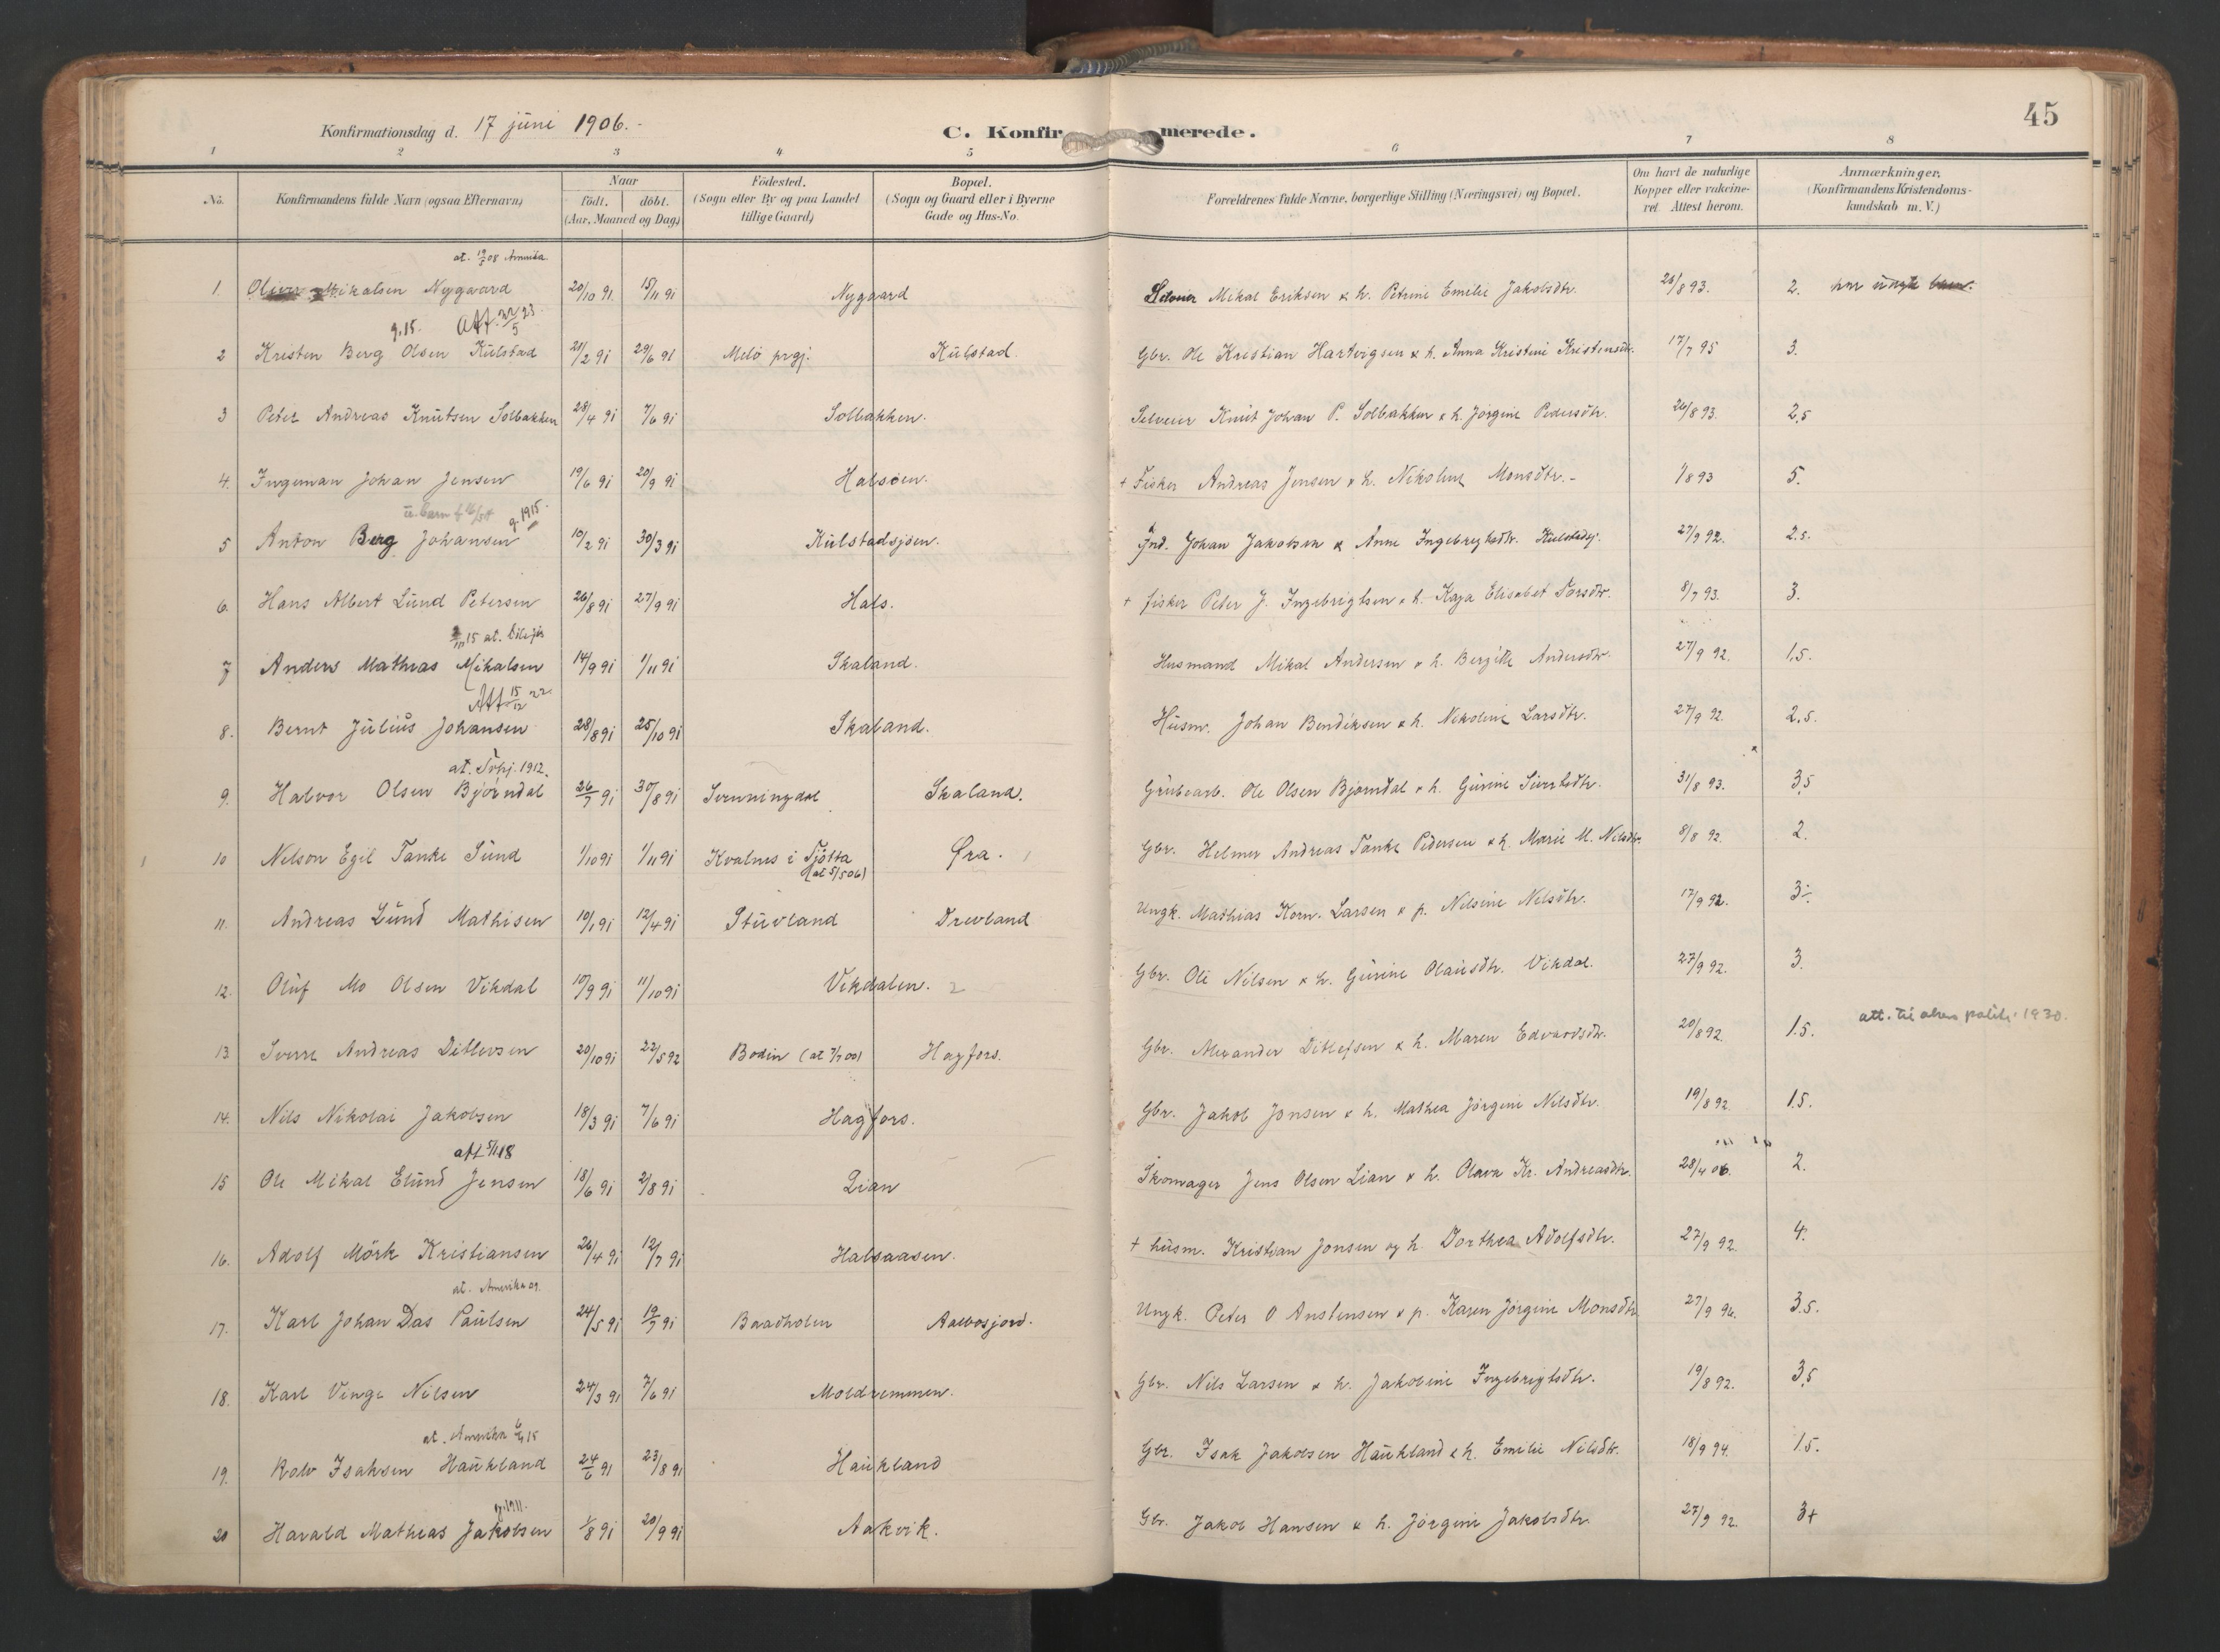 45
Konfirmationsdag d. 17 juni 1906.
C. Konfirmerede.
1 2 3 4 5 6 7 8
No. Konfirmandens fulde Navn (ogsaa Efternavn) Naar født. døbt. (Aar, Maaned og Dag) Fødested. (Sogn eller By og paa Landet tillige Gaard) Bopæl. (Sogn og Gaard eller i Byerne Gade og Hus-No. Forældrenes fulde Navne, borgerlige Stilling (Næringsvei) og Bopæl. Om havt de naturlige Kopper eller vakcineret. Attest herom. Anmærkninger. (Konfirmandens Kristendomskundskab m. V.)
at. 08 Amerika.
1. Mikalsen Nygaard 20/10 91. 15/11 91 Nygaard Mikal Eriksen & h. Petrine Emilie Jakobsdtr. 26/8 93. 2.
g. 15. Att. 22/5 23
2 Kristen Berg Olsen Kulstad 21/2 91 29/6 91 Melö prgj. Kulstad. Gbr. Ole Kristian Hartvigsen & h. Anna Kristine Kristensdtr. 17/7 95 3.
3 Peter Andreas Knutsen Solbakken 28/4 91 7/6 91 Solbakken. Selveier Knut Johan P. Solbakken & h. Jörgine Pedersdtr. 26/8 93. 2,5
4. Ingeman Johan Jensen 19/6 91 20/9 91 Halsöen. + Fisker Andreas Jensen & h. Nikoline Monsdtr. 1/8 93 5.
u. barn g. 1915.
5 Anton Berg Johansen 10/2 91 30/3 91 Kulstadsjöen. Ind. Johan Jakobsen & Anne Ingebrigtsdtr. Kulstadsj. 27/9 92. 2.5.
6. Hans Albert Lund Petersen 26/8 91 27/9 91 Hals. + fisker Peter J. Ingebrigtsen & h. Kaja Elisabet Torsdtr. 8/7 93. 3.
15 at.
7 Anders Mathias Mikalsen 14/9 91 1/11 91 Skaland. Husmand Mikal Andersen & h. Bergitte Andersdtr. 27/9 92. 1,5.
Att 15/12 22
8. Bernt Julius Johansen 28/8 91 25/10 91 Skaland. Husm. Johan Bendiksen & h. Nikoline Larsdtr. 27/9 92. 2,5.
at. 1912.
9. Halvor Olsen Björndal 26/7 91 30/8 91 Svenningdal Skaland. Grubearb. Ole Olsen Björndal & h. Gurine Sivertsdtr. 31/8 93. 3,5
10 Nelson Egil Tanke Sund 1/10 91 1/11 91 Kvalnes i Tjötta (at 5/5 06) Øra. Gbr. Helmer Andreas Tanke Pedersen & h. Marie M. Nilsdtr. 8/8 92. 2.
11. Andreas Lund Mathisen 10/1 91 12/4 91 Stuvland Drevland Ungk. Mathias Korn. Larsen & p. Nilsine Nilsdtr. 17/9 92. 3÷
12. Oluf Mo Olsen Vikdal 10/9 91 11/10 91 Vikdalen. 2 Gbr. Ole Nilsen & h. Gurine Olausdtr. Vikdal. 27/9 92. 3.
13. Sverre Andreas Ditlevsen 20/10 91 22/5 92 Bodin (at 7/7 00) Hagfors. Gbr. Alexander Ditlefsen & h. Maren Edvardsdtr. 20/8 92. 1.5. att. til politi 1930.
14. Nils Nikolai Jakobsen 18/3 91 7/6 91 Hagfors. Gbr. Jakob Jonsen & h. Mathea Jörgine Nilsdtr. 19/8 92. 1.5.
att 5/11 18
15 Ole Mikal Elund Jensen 18/6 91 2/8 91 Lian Skomager Jens Olsen Lian & h. Olava Kr. Andreasdtr. 28/4 06. 2.
16. Adolf Mörk Kristiansen 26/4 91 12/7 91 Halsaasen. + husm. Kristian Jonsen og h. Dorthea Adolfsdtr. 27/9 92. 4.
at. Amerika 09.
17. Karl Johan Das Paulsen 24/5 91 19/7 91 Baadholen Aalbosjord. Ungk. Peter O Anstensen & p. Karen Jörgine Monsdtr. 27/9 96. 3.5.
18. Karl Vinge Nilsen 24/3 91 7/6 91 Moldremmen. Gbr. Nils Larsen & h. Jakobine Ingebrigtsdtr. 19/8 92. 3,5
at. Amerika 15
19. Rolv Isaksen Haukland 24/6 91 23/8 91 Haukland Gbr. Isak Jakobsen Haukland & h. Emilie Nilsdtr. 18/9 94. 1.5.
g. 1911.
20 Harald Mathias Jakobsen 1/8 91 20/9 91 Aakvik. Gbr. Jakob Hansen & h. Jörgine Jakobsdtr. 27/9 92. 3+